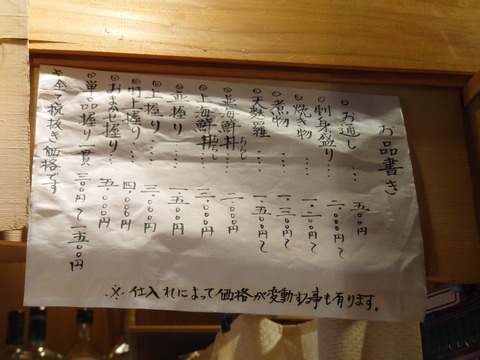 お品書き
◎お通し・・・・五〇〇円
◎刺身盛り・・・二、〇〇〇円〜
◎焼き物・・・・一、二〇〇円〜
◎煮物・・・・一、二〇〇円〜
◎天麩羅・・・・一、五〇〇円〜
◎並海鮮丼(ちらし)・・・二、〇〇〇円
◎上海鮮丼(ちらし)・・・三、〇〇〇円
◎並握り・・・・一、五〇〇円
◎上握り・・・・三、〇〇〇円
◎特上握り・・・四、〇〇〇円
◎おまかせ握り・・・五、〇〇〇円
◎単品握り一貫三〇〇円〜一五〇〇円
☆全て税抜き価格です
※仕入れによって価格が変動する事も有ります。